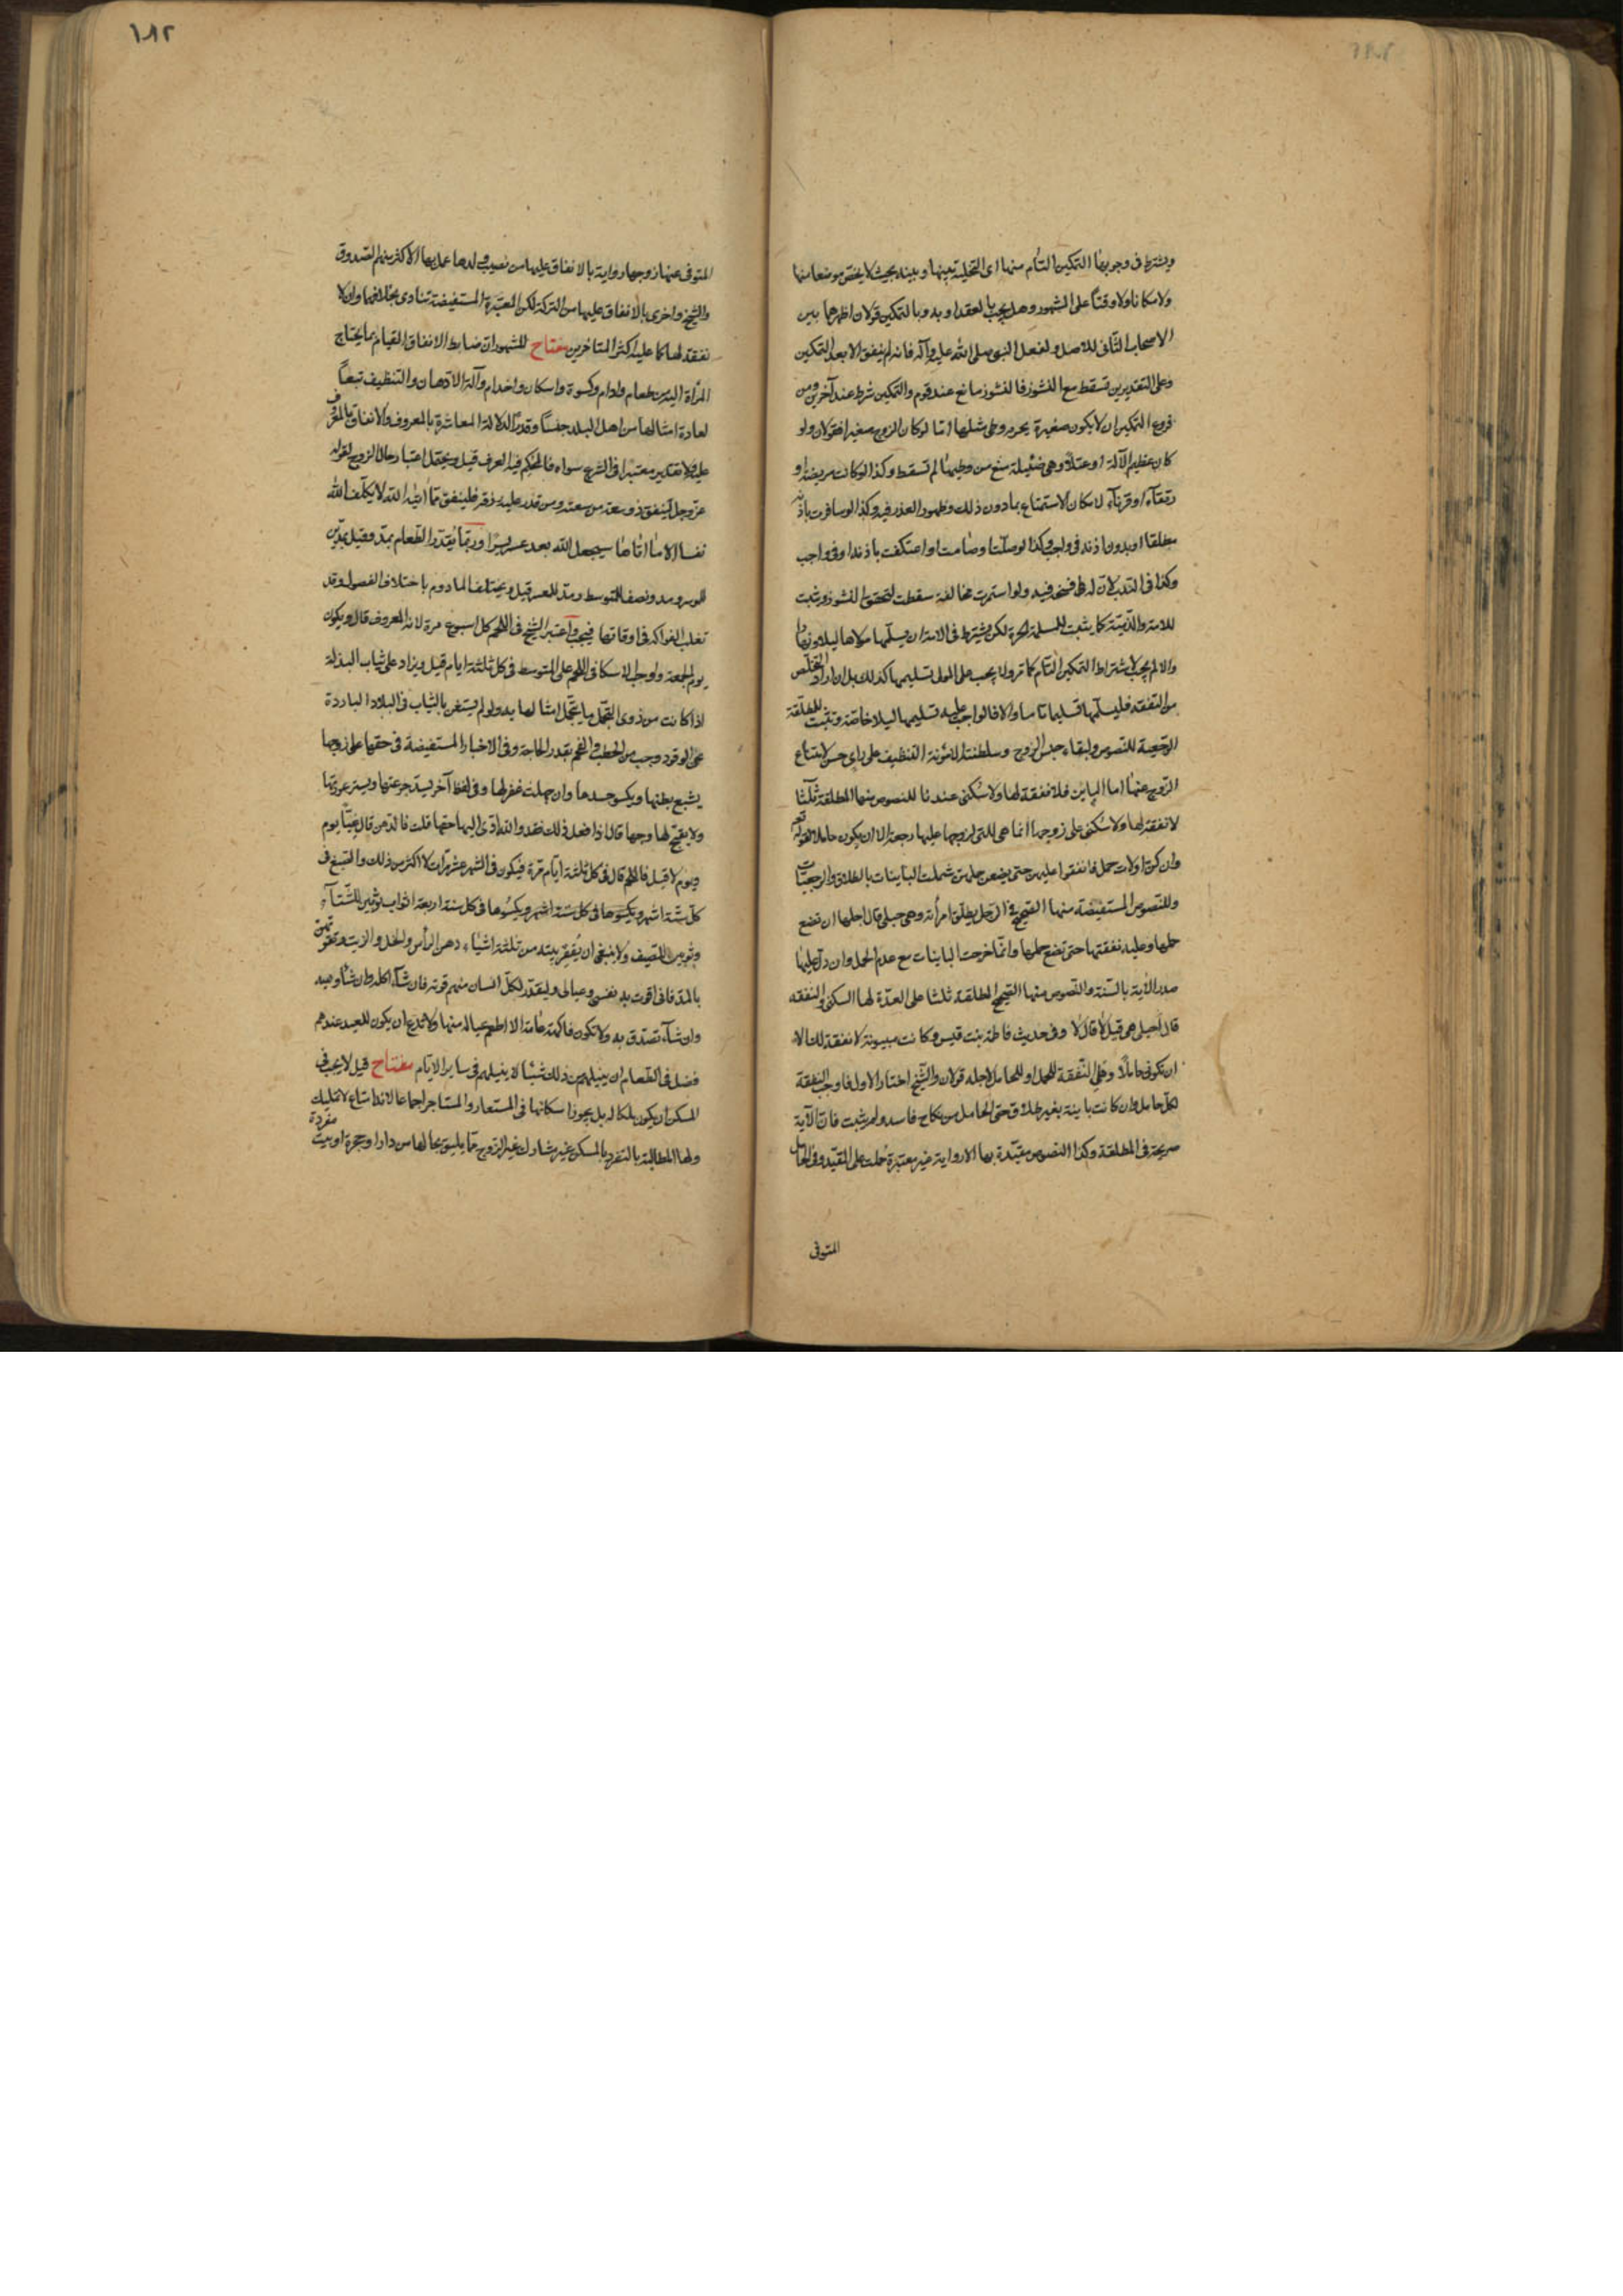 ويشترط في وجوبها التمكين التام منها اى التخلية بينها وبينه بحيث لا يختص موضعا منها
ولا مكانا ولا وقتا على المشهور وهل يجب بالعقد او به وبالتمكين قولان اظهرهما بين
الاصحاب الثانى للاصل ولفعل النبى صلى الله عليه وآله فانه لم ينفق الا بعد التمكين
وعلى التقديرين تسقط مع النشوز فالنشوز مانع عند قوم والتمكين شرط عند آخرين ومن
فروع التمكين ان لا يكون صغيرة يحرم وطى مثلها اما لو كان الزوج صغيرا فقولان ولو
كان عظيم الآلة او عتلا وهى ضئيلة منع من وطيها لم تسقط وكذا لو كانت مريضة او
رتقاء او قرناء لامكان الاستمتاع بما دون ذلك وظهور العذر فيه وكذا لو سافرت باذنه
مطلقا او بدون اذنه في واجب وكذا لو صلت او صامت او اعتكفت باذنه او في واجب
وكذا في الندب لان له فسخه فيه ولو استمرت مخالفة سقطت لتحقق النشوز ويثبت
للامة والذمية كما يثبت للمسلمة الحرة لكن يشترط في الامة ان يسلمها مولاها ليلا ونهارا
والا لم يجب لاشتراط التمكين التام كما مر ولا يجب على المولى تسليمها كذلك بل ان اراد التخلص
من النفقه فليسلمها تسليما تاما والا فالواجب عليه تسليمها ليلا خاصة وتثبت للمطلقة
الرجعية للنصوص ولبقاء حبس الزوج وسلطنته المئونة التنظيف على راى حسن لامتناع
الزوج عنها اما الباين فلا نفقة لها ولا سكنى عندنا للنصوص منها المطلقة ثلثا
لا نفقة لها ولا سكنى على زوجها انما هى للتى لزوجها عليها رجعة الا ان يكون حاملا لقوله تعالى
وان كن اولات حمل فانفقوا عليهن حتى يضعن حملهن شملت الباينات بالطلاق والرجعيات
وللنصوص المستفيضة منها الصحيح في الرجل يطلق امرأته وهى حبلى قال اجلها ان تضع
حملها وعليه نفقتها حتى تضع حملها وانما خرجت الباينات مع عدم الحمل وان دل عليها
صدر الآية بالسنة والنصوص منها الصحيح المطلقة ثلثا على العدة لها السكنى والنفقه
قال أحبلى هى قيل لا قال لا وفى حديث فاطمة بنت قيس وكانت مبتوتة لا نفقة لك الا
ان تكونى حاملا وهل النفقة للحمل او للحامل لاجله قولان والشيخ اختار الاول فاوجب النفقة
لكل حامل وان كانت باينة بغير طلاق حتى الحامل من نكاح فاسد ولم يثبت فان الآية
صريحة في المطلقة وكذا النصوص مقيدة بها الا رواية غير معتبرة حملت على المقيد وفى الحامل
المتوفى
١٨٢
المتوفى عنها زوجها رواية بالانفاق عليها من نصيب ولدها عمل بها الاكثر منهم الصدوق
والشيخ واخرى بالانفاق عليها من التركة لكن المعتبرة المستفيضة تنادى بخلافهما وان لا
نفقة لها كما عليه اكثر المتاخرين مفتاح المشهور ان ضابط الانفاق القيام بما يحتاج
المرأة اليه من طعام وادام وكسوة واسكان واخدام وآلة الادهان والتنظيف تبعاً
لعادة امثالها من اهل البلد جنساً وقدراً لدلالة المعاشرة بالمعروف والانفاق بالمعروف
عليه ولا تقدير معتبراً في الشرع سواه فالمحكم فيه العرف قيل ويحتمل اعتبار حال الزوج لقوله
عز وجل لينفق ذو سعة من سعته ومن قدر عليه رزقه فلينفق مما اتيه الله لا يكلف الله
نفسا الا ما اتاها سيجعل الله بعد عسر يسرا وربما يقدر الطعام بمد وقيل بمدين
للموسر ومد ونصف للمتوسط ومد للمعسر قيل ويختلف المادوم باختلاف الفصول وقد
تغلب الفواكه في اوقاتها فيجب واعتبر الشيخ في اللحم كل اسبوع مرة لانه المعروف قال ويكون
يوم الجمعة واوجب الاسكافى اللحم على المتوسط في كل ثلثة ايام قيل ويزاد على ثياب البذلة
اذا كانت من ذوى التجمل ما يتجمل امثالها به ولو لم يستغن بالثياب في البلاد الباردة
عن الوقود وجب من الحطب والفحم بقدر الحاجة وفى الاخبار المستفيضة في حقها على زوجها
يشبع بطنها ويكسو جسدها وان جهلت غفر لها وفى لفظ آخر ليسد جوعتها ويستر عورتها
ولا يقبح لها وجها قال اذا فعل ذلك فقد والله ادى اليها حقها قلت فالدهن قال غباً يوم
ويوم لا قيل فاللحم قال في كل ثلثة ايام مرة فيكون في الشهر عشر مرات لا اكثر من ذلك والصبغ في
كل ستة اشهر ويكسوها في كل سنة اربعة اثواب ثوبين للشتاء
وثوبين للصيف ولا ينبغى ان يفقر بيته من ثلثة اشياء دهن الرأس والخل والزيت وتقوتهن
بالمد فانى اقوت به نفسى وعيالى وليقدر لكل انسان منهم قوته فان شاء اكله وان شاء وهبه
وان شاء تصدق به ولا تكون فاكهة عامة الا اطعم عياله منها ولا تدع ان يكون للعيد عندهم
فضل في الطعام ان ينيلهم من ذلك شيئا لا ينيلهم في ساير الايام مفتاح قيل لا يجب في
المسكن ان يكون ملكا له بل يجوز اسكانها في المستعار والمستاجر اجماعا لانه امتاع لا تمليك
ولها المطالبة بالتفرد بالمسكن غير مشارك غير الزوج مما يليق بحالها من دار او حجرة او بيت مفردة